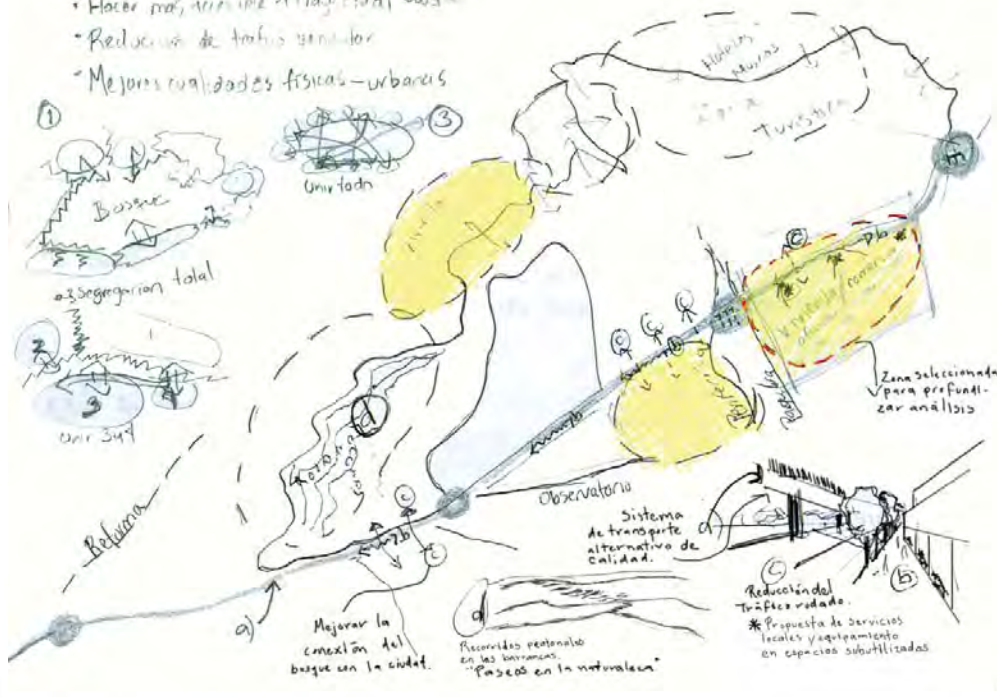 • Hacer más accesible
• Reducción de trafico vehicular
• Mejores cualidades físicas-urbanas
1
Bosque
Segregacion total
2
3
4
Unir 3 y 4
3
Unir todo
Hoteles,
Museos
Zona
Turistica
Zona seleccionada
para profundi-
zar análisis
Reforma
d
Observatorio
a)
b
c
c
Mejorar la
conexión del
bosque con la ciudad.
d
Recorridos peatonales
en las barrancas.
"Paseos en la naturaleza"
Sistema
de transporte
alternativo de
calidad.
a
c
b
Reducción del
Tráfico rodado.
* Propuesta de servicios
locales y equipamiento
en espacios subutilizados